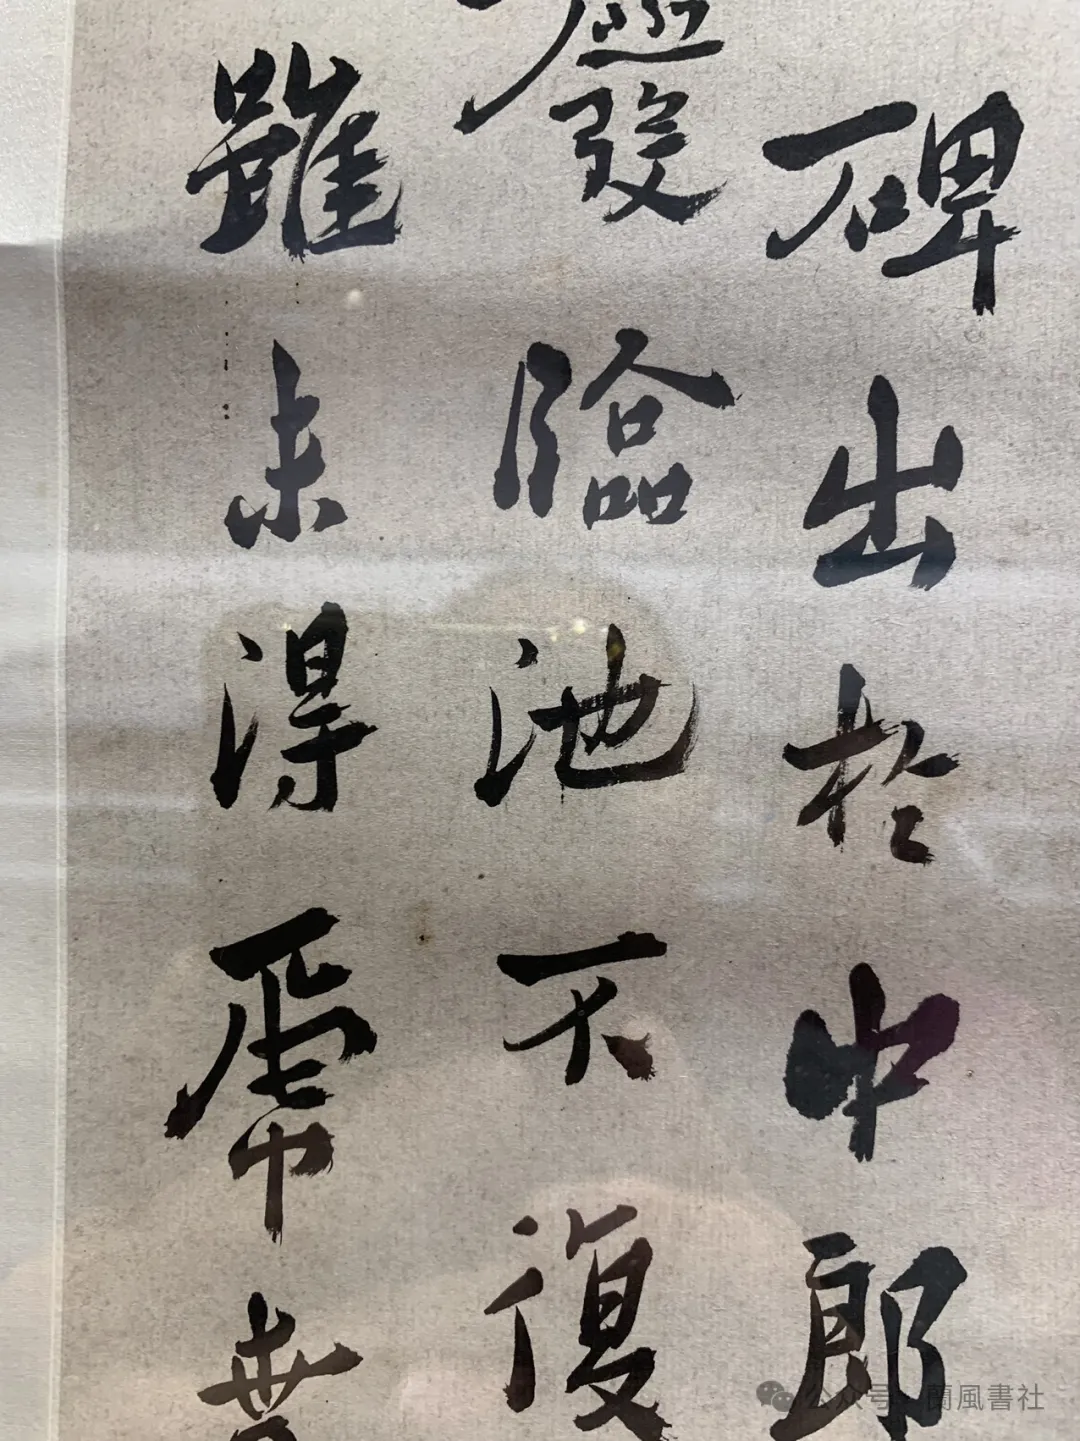 碑出於中郎
廢臨池不復
雖未得虎賁
公众号 · 蘭風書社